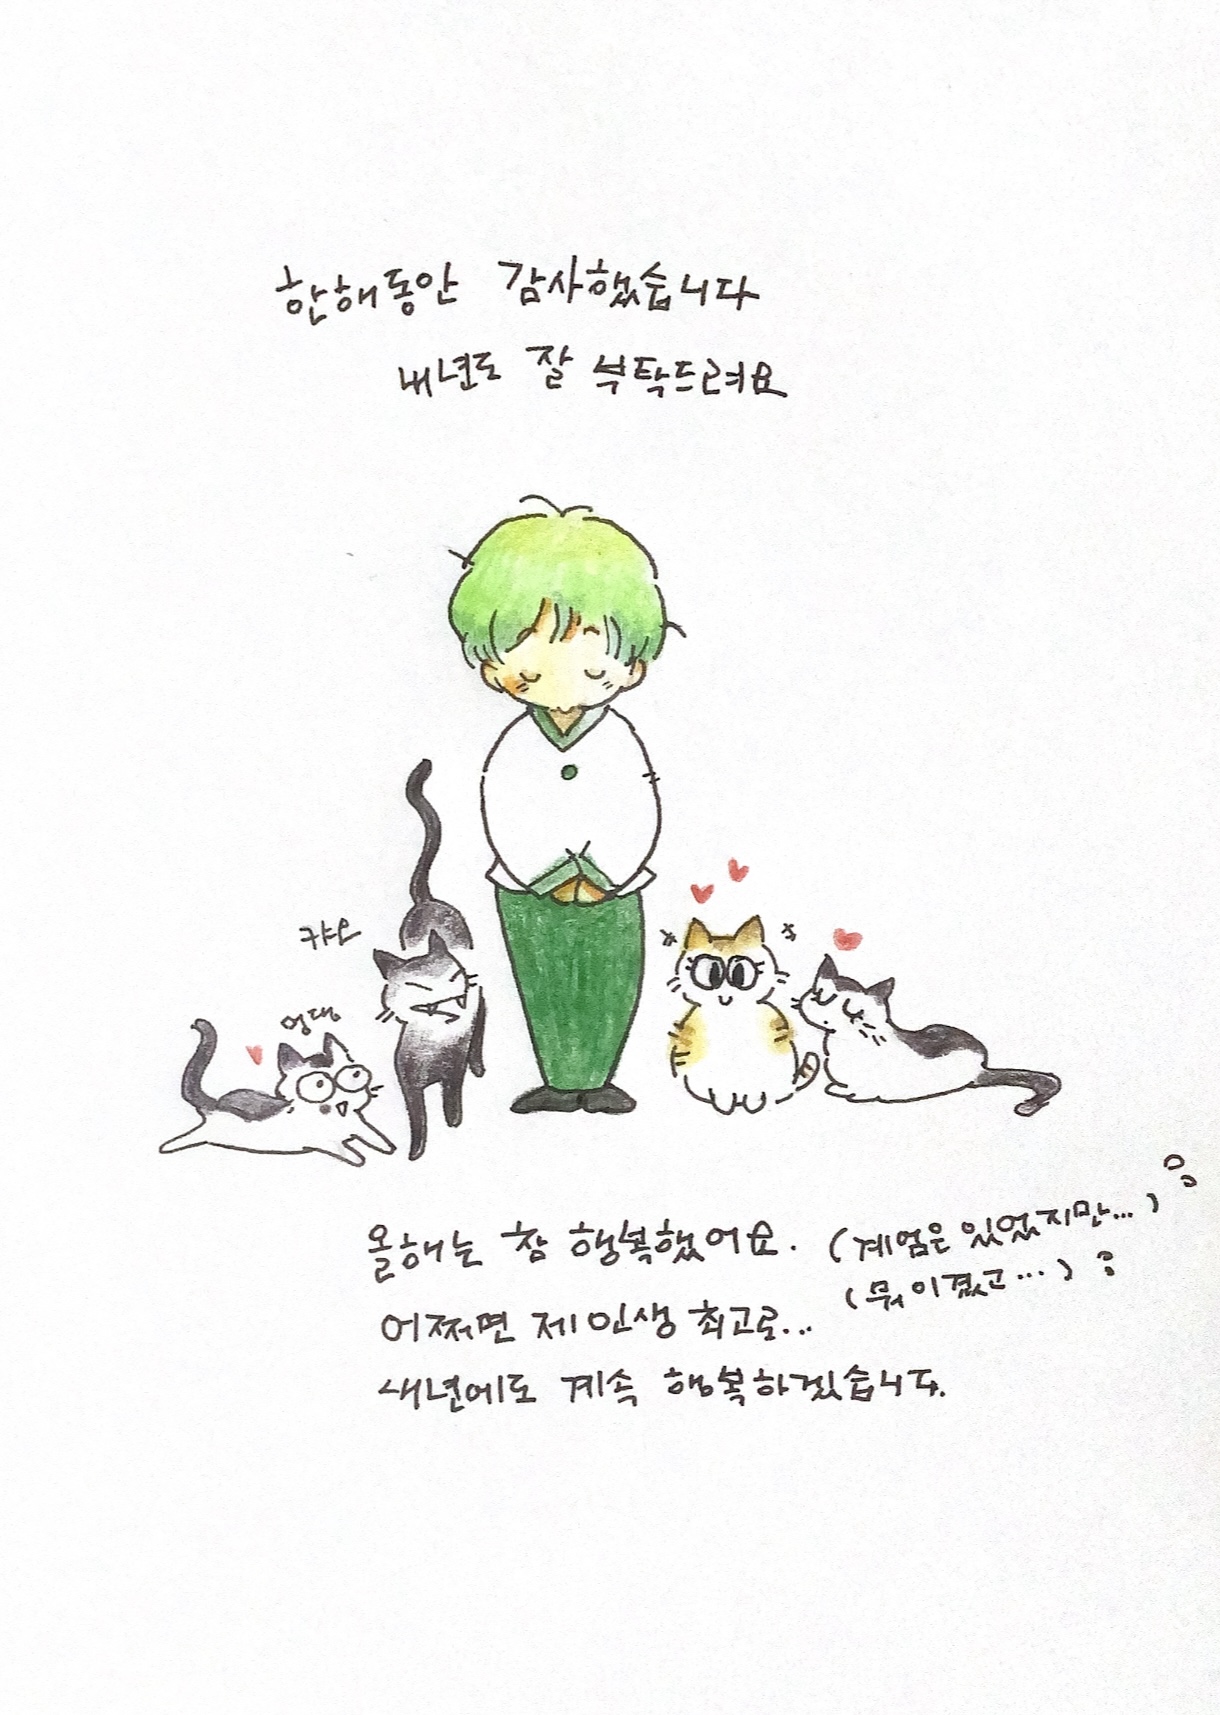 한해동안 감사했습니다
내년도 잘 부탁드려요
캬오
엄댕
올해는 참 행복했어요. (계엄은 있었지만...)
(뭐 이겼고...)
어쩌면 제 인생 최고로...
새년에도 계속 행복하겠습니다.